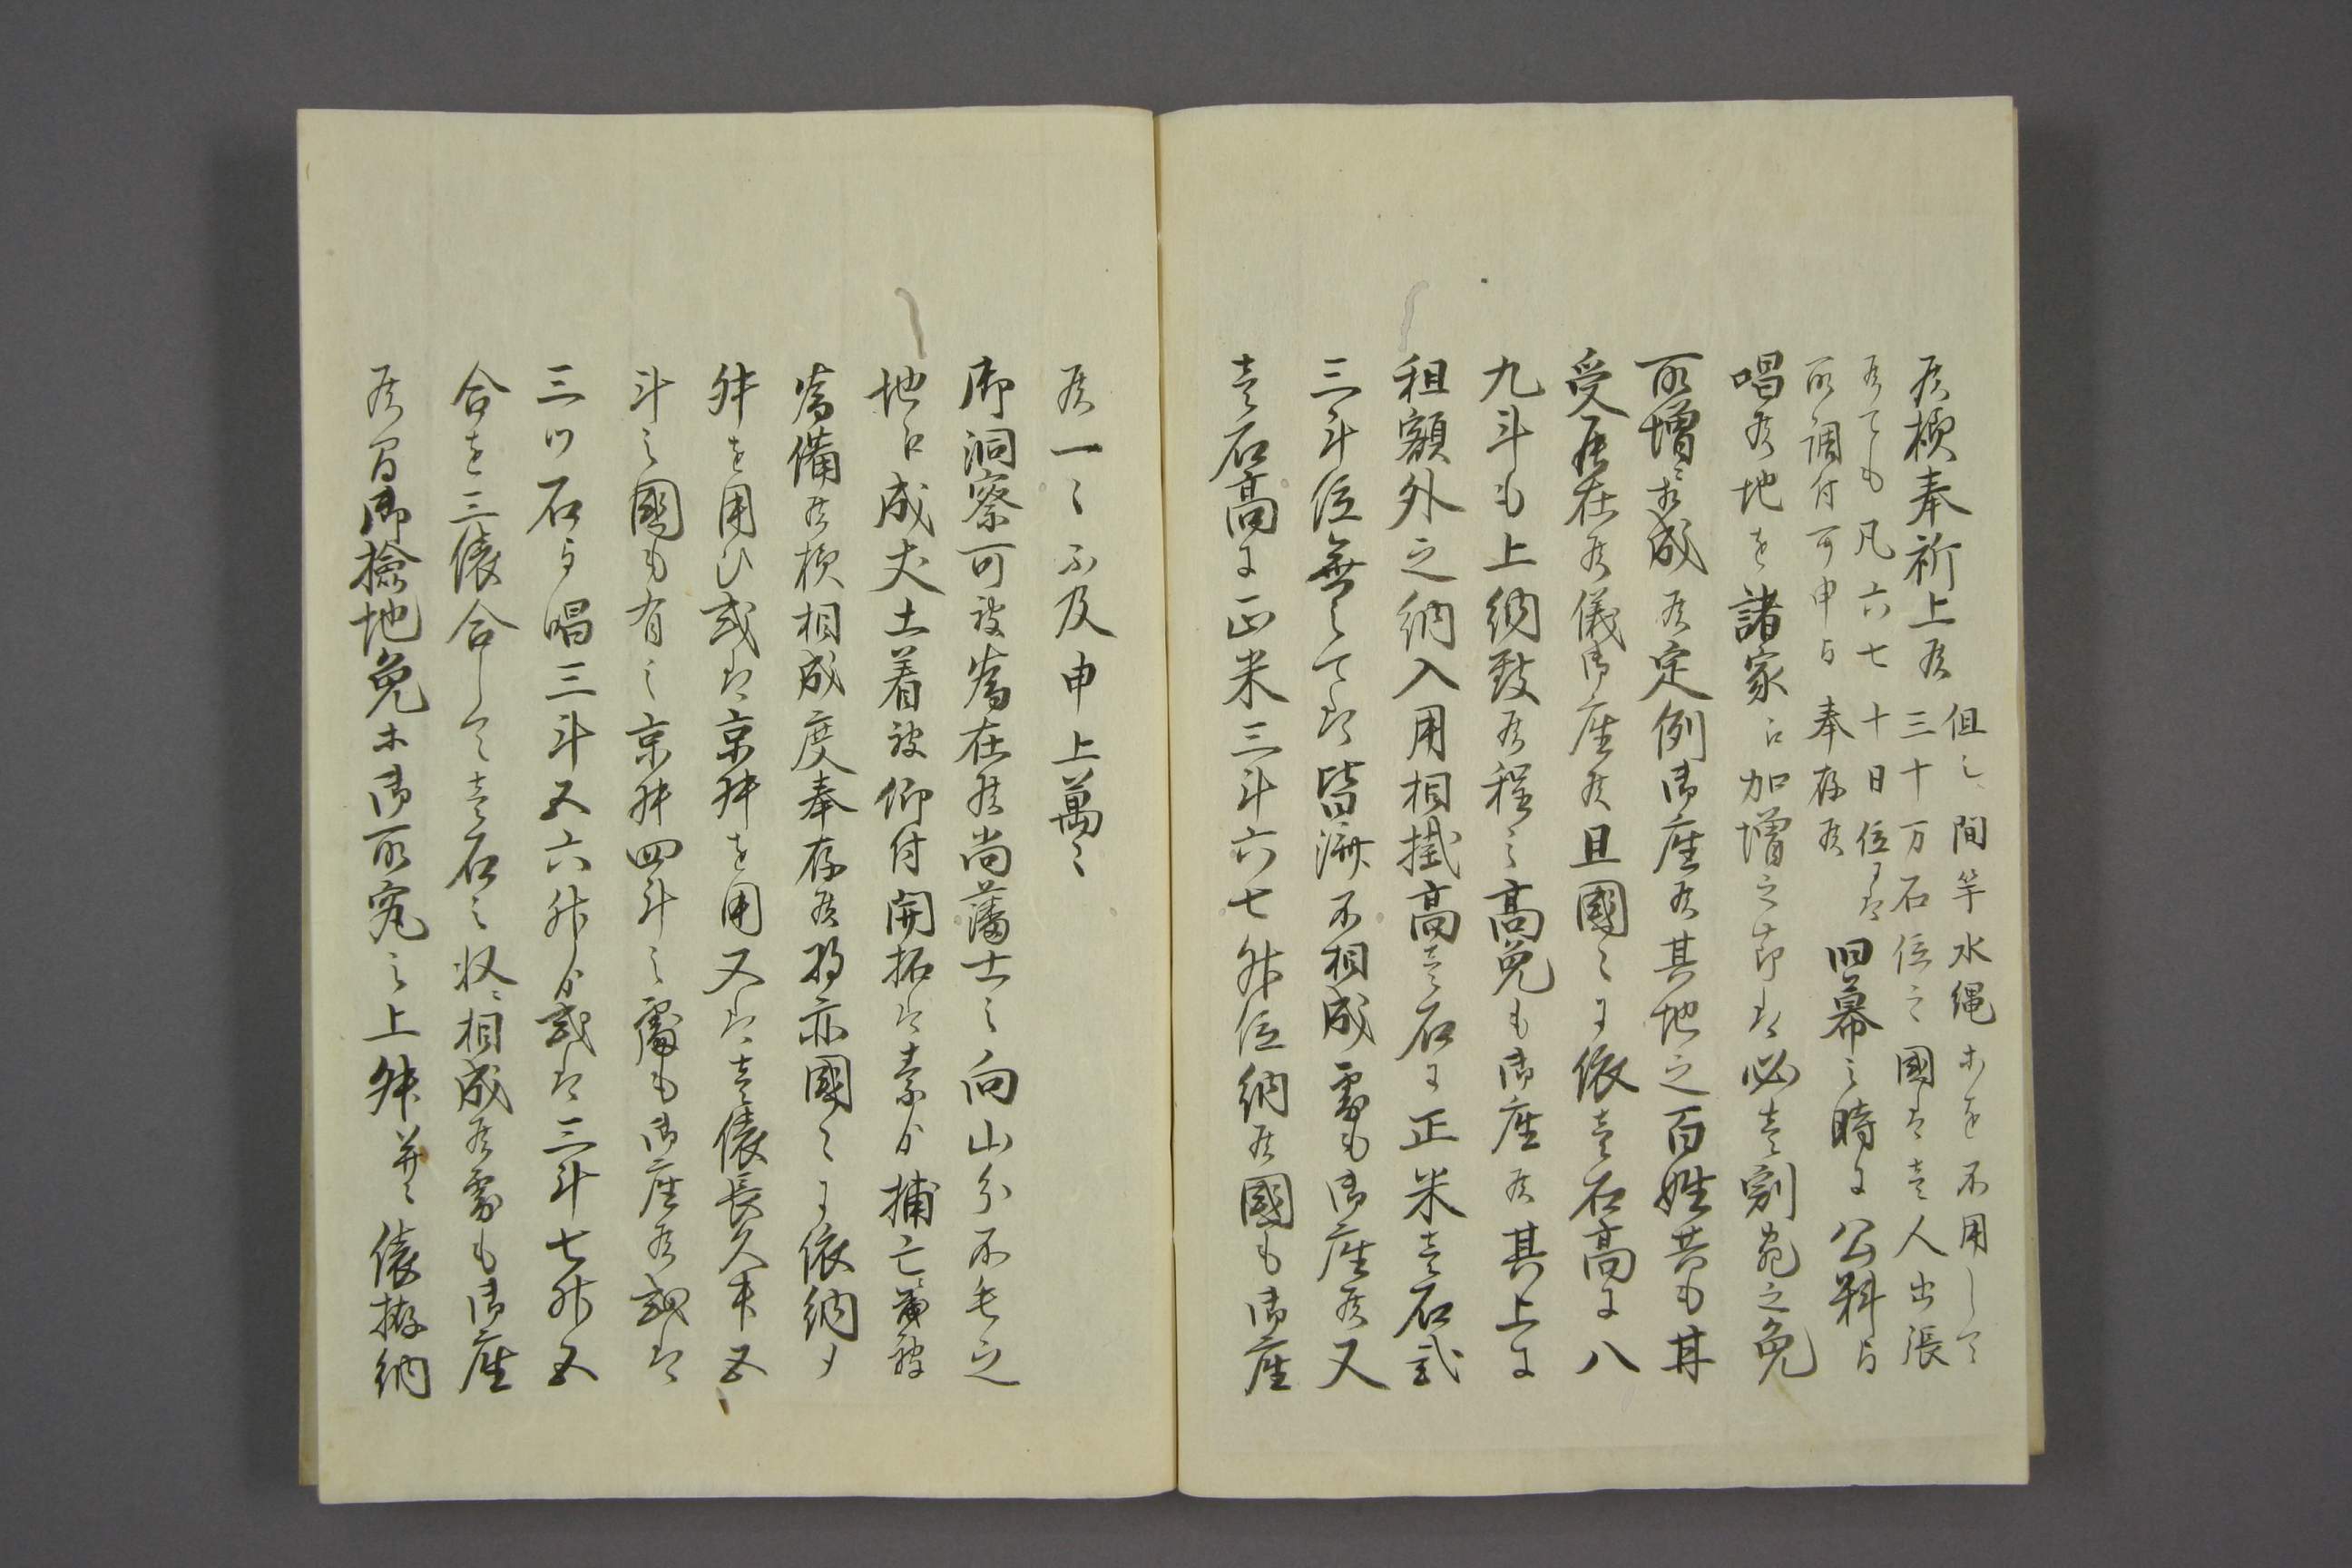 候様奉祈上候
但シ間竿水縄ホを不用して
三十万石位之國は壱人出張
候ても凡六七十日位ニは
取調付可申与奉存候
旧幕之時ニ公料与
唱候地を諸家江加増之節は必壱割宛之免
取増ニ相成候定例御座候其地之百姓共も其
受居在候儀御座候且國々ニ依壱石高ニ八
九斗も上納致候程之高免も御座候其上ニ
租額外之納入用相掛高壱石ニ正米壱石弐
三斗位無之ては皆済不相成處も御座候又
壱石高ニ正米三斗六七舛位納候國も御座
候一々不及申上萬々
御洞察可被為在候尚藩士之向山分不毛之
地江成丈土着被仰付開拓は素より捕亡筋被
為備候様相成度奉存候将亦國々ニ依納メ
舛を用ひ或は京舛を用又は壱俵長久米五
斗之國も有之京舛四斗之處も御座候或は
三ツ石与唱三斗五六舛より或は三斗七舛五
合を三俵合して壱石之収ニ相成候處も御座
候間御撿地免ホ御取究之上舛并ニ俵拵納